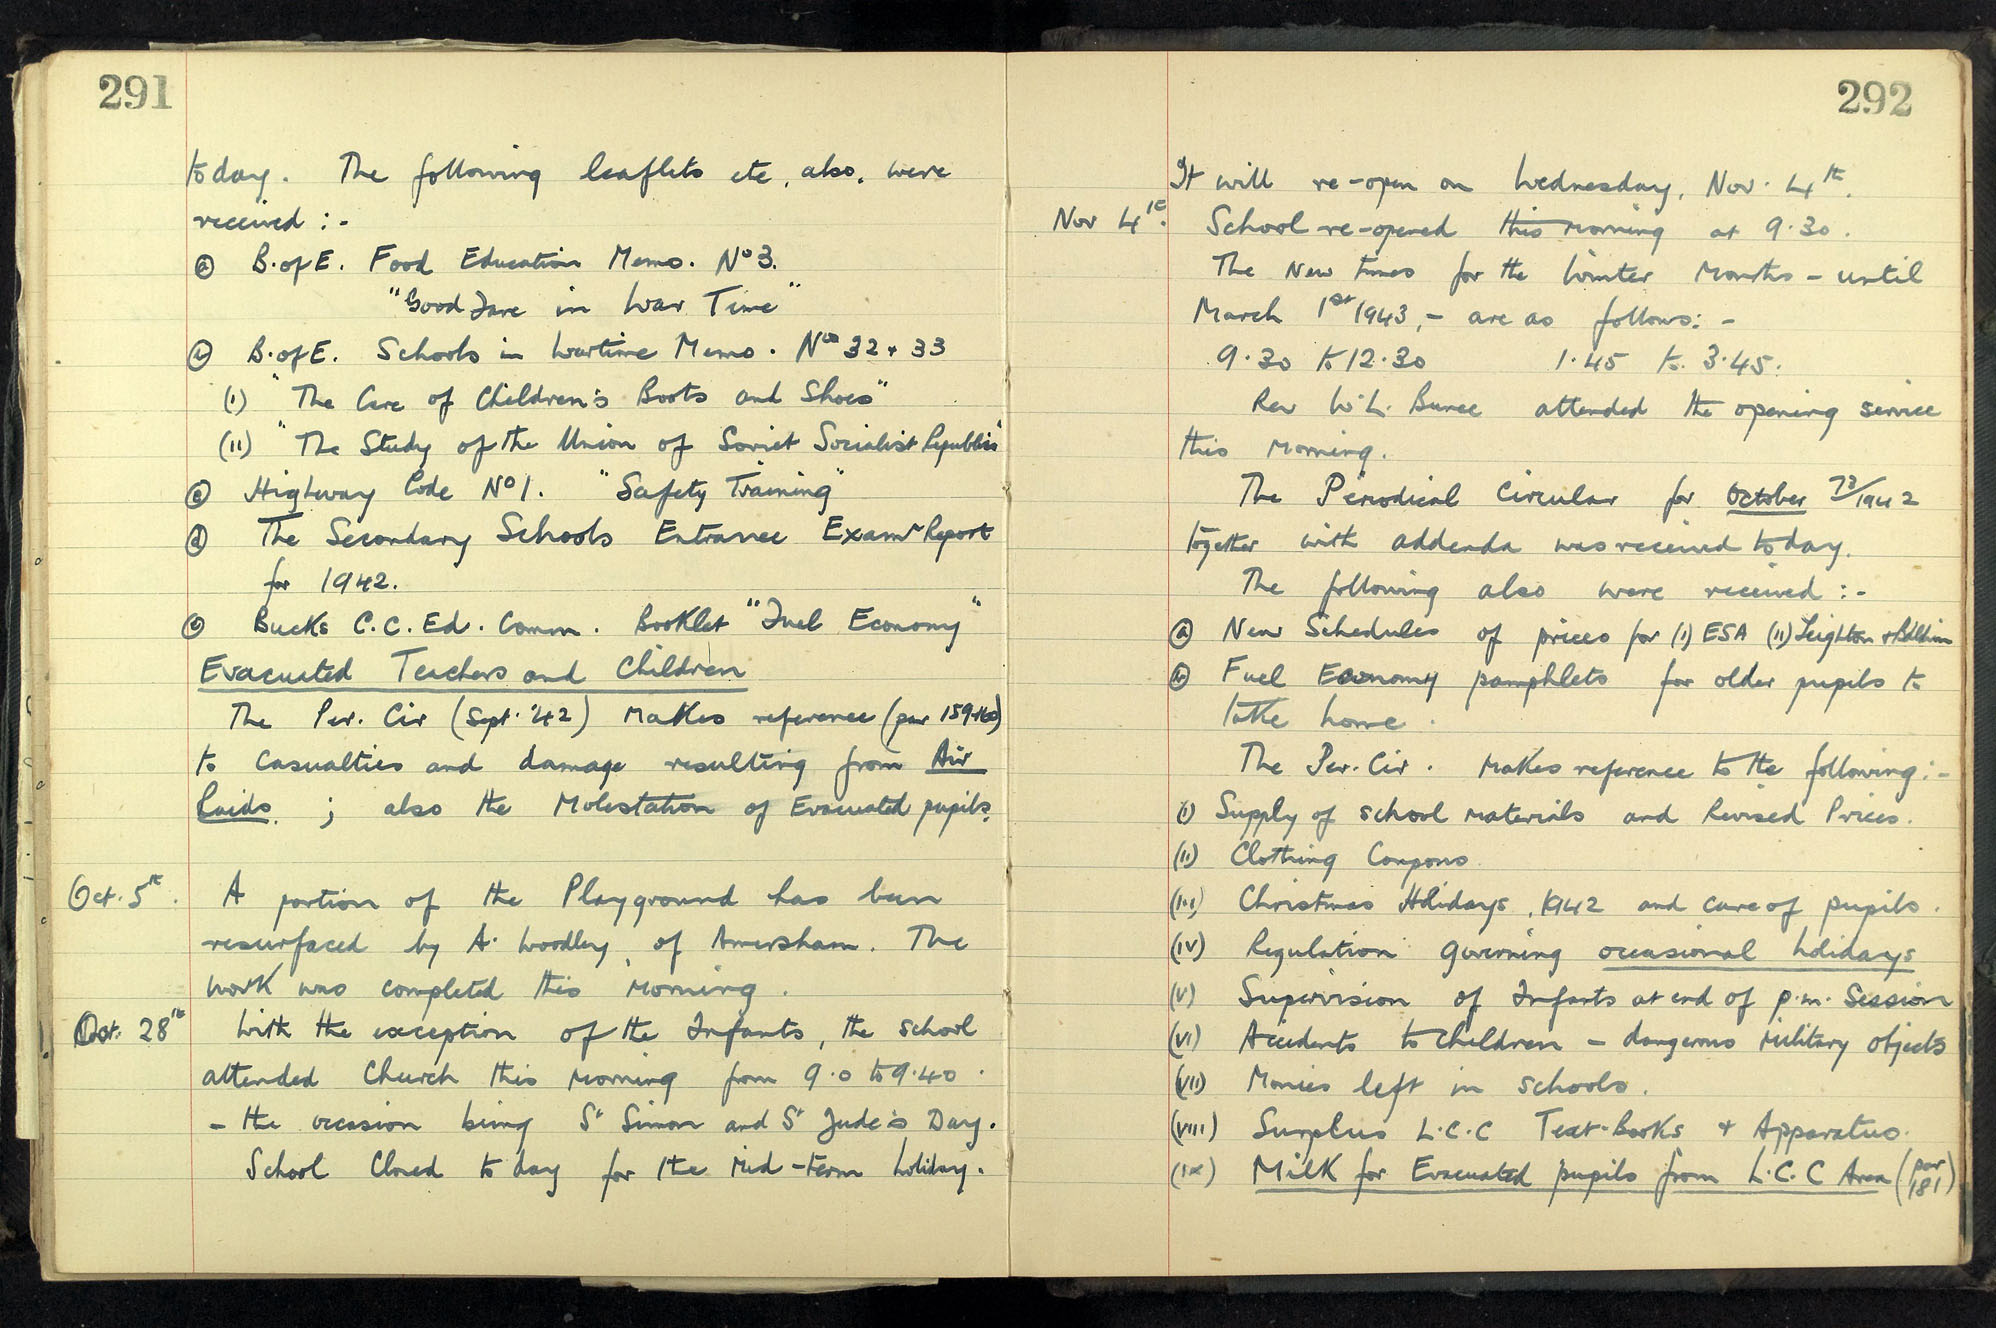 291
today. The following leaflets etc, also, were
received :-
(a) B. of E. Food Education Memo. No 3.
"Good Fare in War Time"
(b) B. of E. Schools in Wartime Memo. Nos 32 + 33
(i) "The Care of Children's Boots and Shoes"
(ii) "The Study of the Union of Soviet Socialist Republics"
(c) Highway Code No 1. "Safety Training"
(d) The Secondary Schools Entrance Examn Report
for 1942.
(e) Bucks C.C. Ed. Comm. Booklet "Fuel Economy"
Evacuated Teachers and Children
The Per. Cir (Sept. '42) makes reference (par 159+160)
to casualties and damage resulting from Air
Raids ; also the Molestation of Evacuated pupils.
Oct. 5th. A portion of the Playground has been
resurfaced by A. Woodley, of Amersham. The
work was completed this morning.
Oct. 28th With the exception of the Infants, the school
attended Church this morning from 9.0 to 9.40.
- the occasion being St Simon and St Jude's Day.
School closed today for the mid-term holiday.
292
It will re-open on Wednesday, Nov. 4th.
Nov 4th. School re-opened this morning at 9.30.
The new times for the winter months - until
March 1st 1943, - are as follows: -
9.30 to 12.30 1.45 to 3.45.
Rev W. L. Bunce attended the opening service
this morning.
The Periodical Circular for October 73/1942
together with addenda was received today.
The following also were received :-
(a) New Schedules of prices for (i) ESA (ii) Leighton +
(b) Fuel Economy pamphlets for older pupils to
take home.
The Per. Cir. makes reference to the following :-
(i) Supply of school materials and Revised Prices.
(ii) Clothing Coupons
(iii) Christmas Holidays, 1942 and care of pupils.
(iv) Regulation governing occasional holidays
(v) Supervision of Infants at end of p.m. Session
(vi) Accidents to children - dangerous military objects
(vii) Monies left in schools.
(viii) Surplus L.C.C Text-Books + Apparatus.
(ix) Milk for Evacuated pupils from L.C.C Area (par 181)